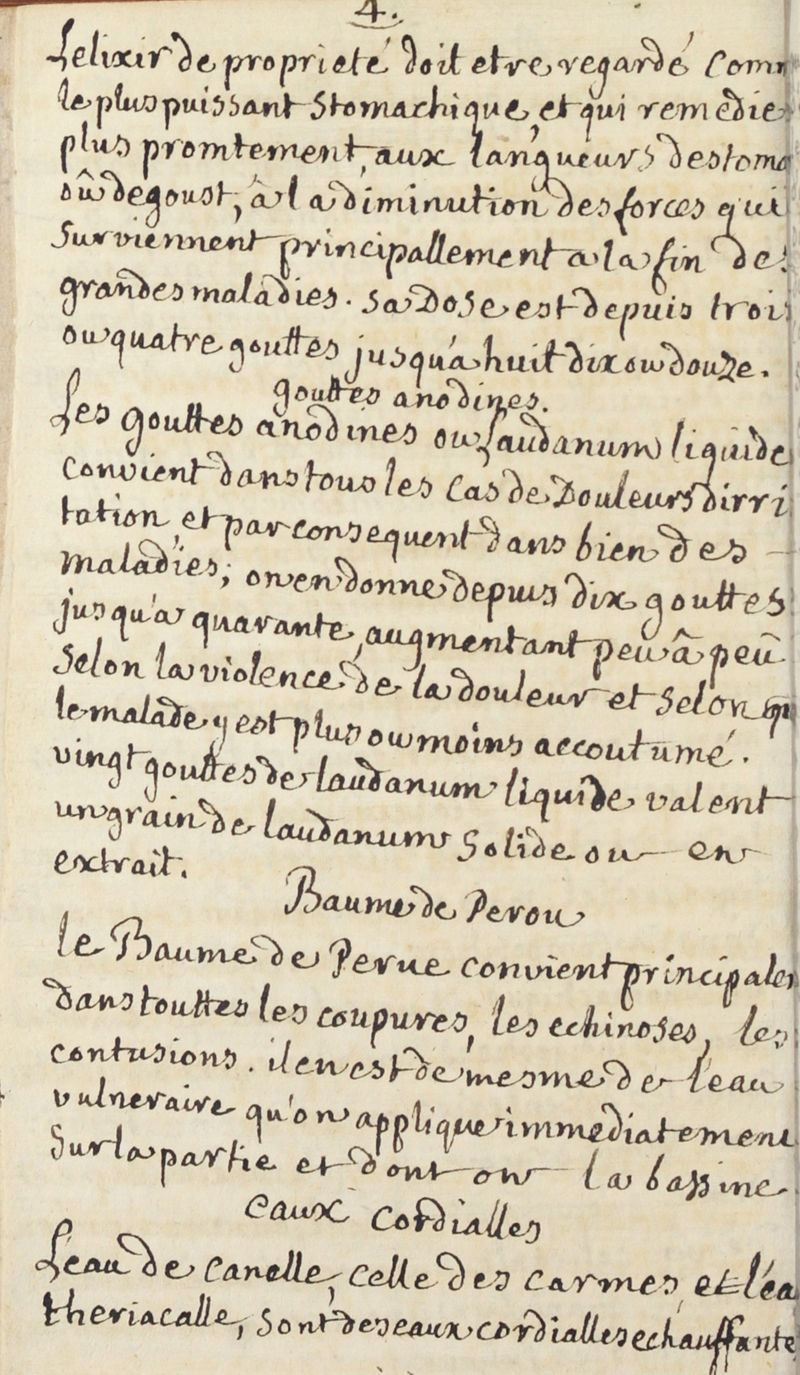 4.
Lelixir de proprieté doit etre regardé Comm
le plus puissant Stomachique, et qui remedie
plus promtement, aux langueurs destoma
où degoust, à la diminution des forces qui
Surviennent principallement a la fin des
grandes maladies. Sa Dose est depuis trois
ou quatre gouttes jusqu'a huit dix ou douze.
gouttes anodines.
Les gouttes anodines ou Laudanum liquide
Convient dans tous les Cas de Douleurs dirri
tation, et par consequent dans bien des
Maladies; on en donne depuis dix gouttes
jusqu'a quarante, augmentant peu â peû
Selon la violence de la douleur et Selon qu
le malade y est plus ou moins accoutumé.
vingt gouttes de laudanum liquide valent
un grain de laudanum Solide ou en
extrait.
Baume de Perou
le Baume de Perue convient principalem
dans touttes les coupures, les echinoses, les
contusions. il en est de mesme de l'eau
vulneraire qu'on applique immediatement
Sur la partie et dont on la bassine.
eaux Cordialles
Leau de Canelle, Celle des Carmes, et l'ea
theriacalle, Sont des eaux cordialles echauffante